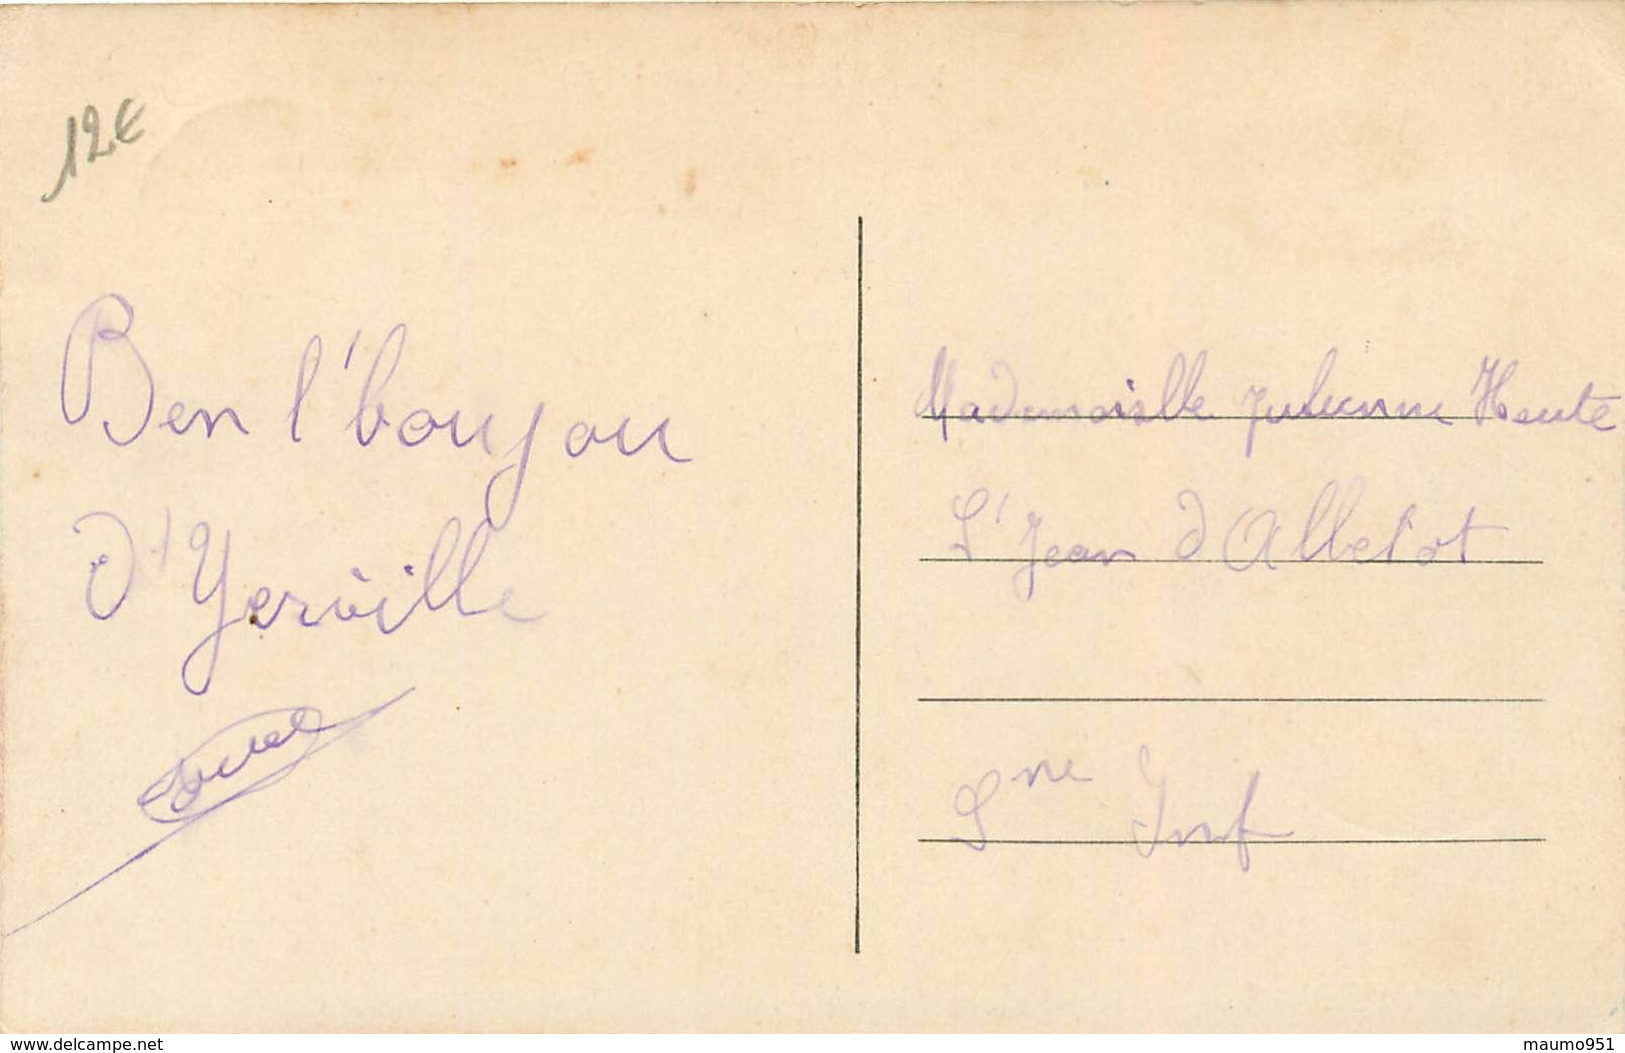 12€
Ben l'boujou
d'Yerville
Mademoiselle Julienne Heute
St Jean d'Abbetot
Sne Inf
www.delcampe.net
maumo951